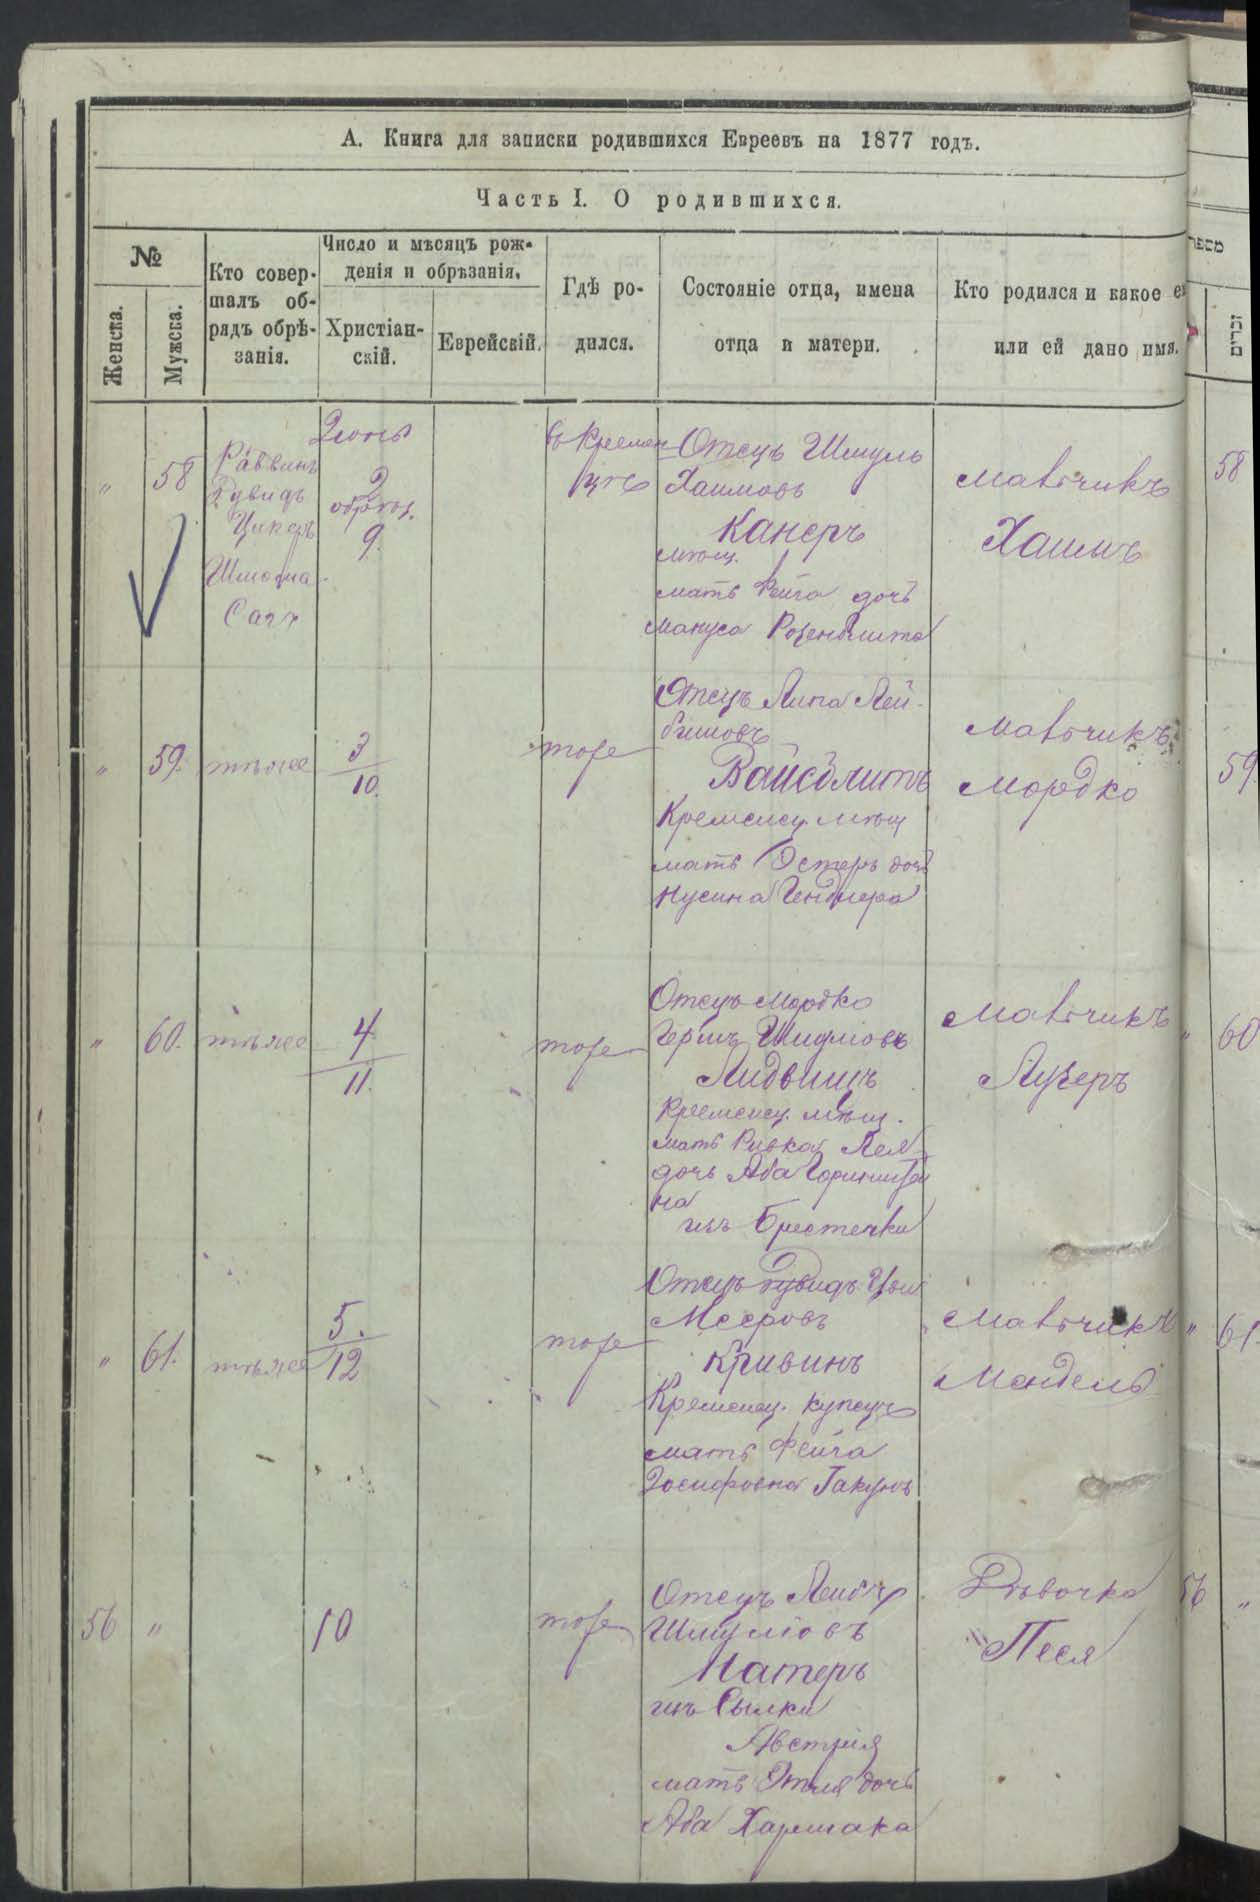 А. Книга для записки родившихся Евреевъ на 1877 годъ.
Часть I. О родившихся.
№
Женска.
Мужска.
Кто совер-
шалъ об-
рядъ обрѣ-
занія.
Число и мѣсяцъ рож-
денія и обрѣзанія.
Христіан-
скій.
Еврейскій.
Гдѣ ро-
дился.
Состояніе отца, имена
отца и матери.
Кто родился и какое е
или ей дано имя.
זכרים
" 58
Раввинъ
Дувидъ
Шлёма
Іюнь
2
обрѣз.
9.
въ Кремен
цѣ
Отецъ Шмуль
Хаимовъ
Канеръ
мѣщ.
мать Фейга дочь
Мануса Розенблита
мальчикъ
Хаимъ
58
" 59.
тѣ же
3
10.
тоже
Отецъ Липа Лей-
бишовъ
Вайсблитъ
Кременец. мѣщ
мать Эстеръ дочь
Нусина Гендлера
мальчикъ
Мордко
59.
" 60.
тѣ же
4
11.
тоже
Отецъ Мордко
Гершъ Шмуліовъ
Лидвицъ
Кременец. мѣщ.
мать Ривка Лея
дочь Аба Горинштей
на
изъ Брестечки
мальчикъ
Лузеръ
" 60
" 61.
тѣ же
5.
12
тоже
Отецъ Дувидъ Цви
Мееровъ
Кривинъ
Кременец. купецъ
мать Фейга
Іосифовна
мальчикъ
Мендель
" 61.
56 "
10
тоже
Отецъ Лейбъ
Шмуліовъ
Матеръ
изъ
Австрія
мать Этля дочь
Аба Хармака
Дѣвочка
Песя
56 "